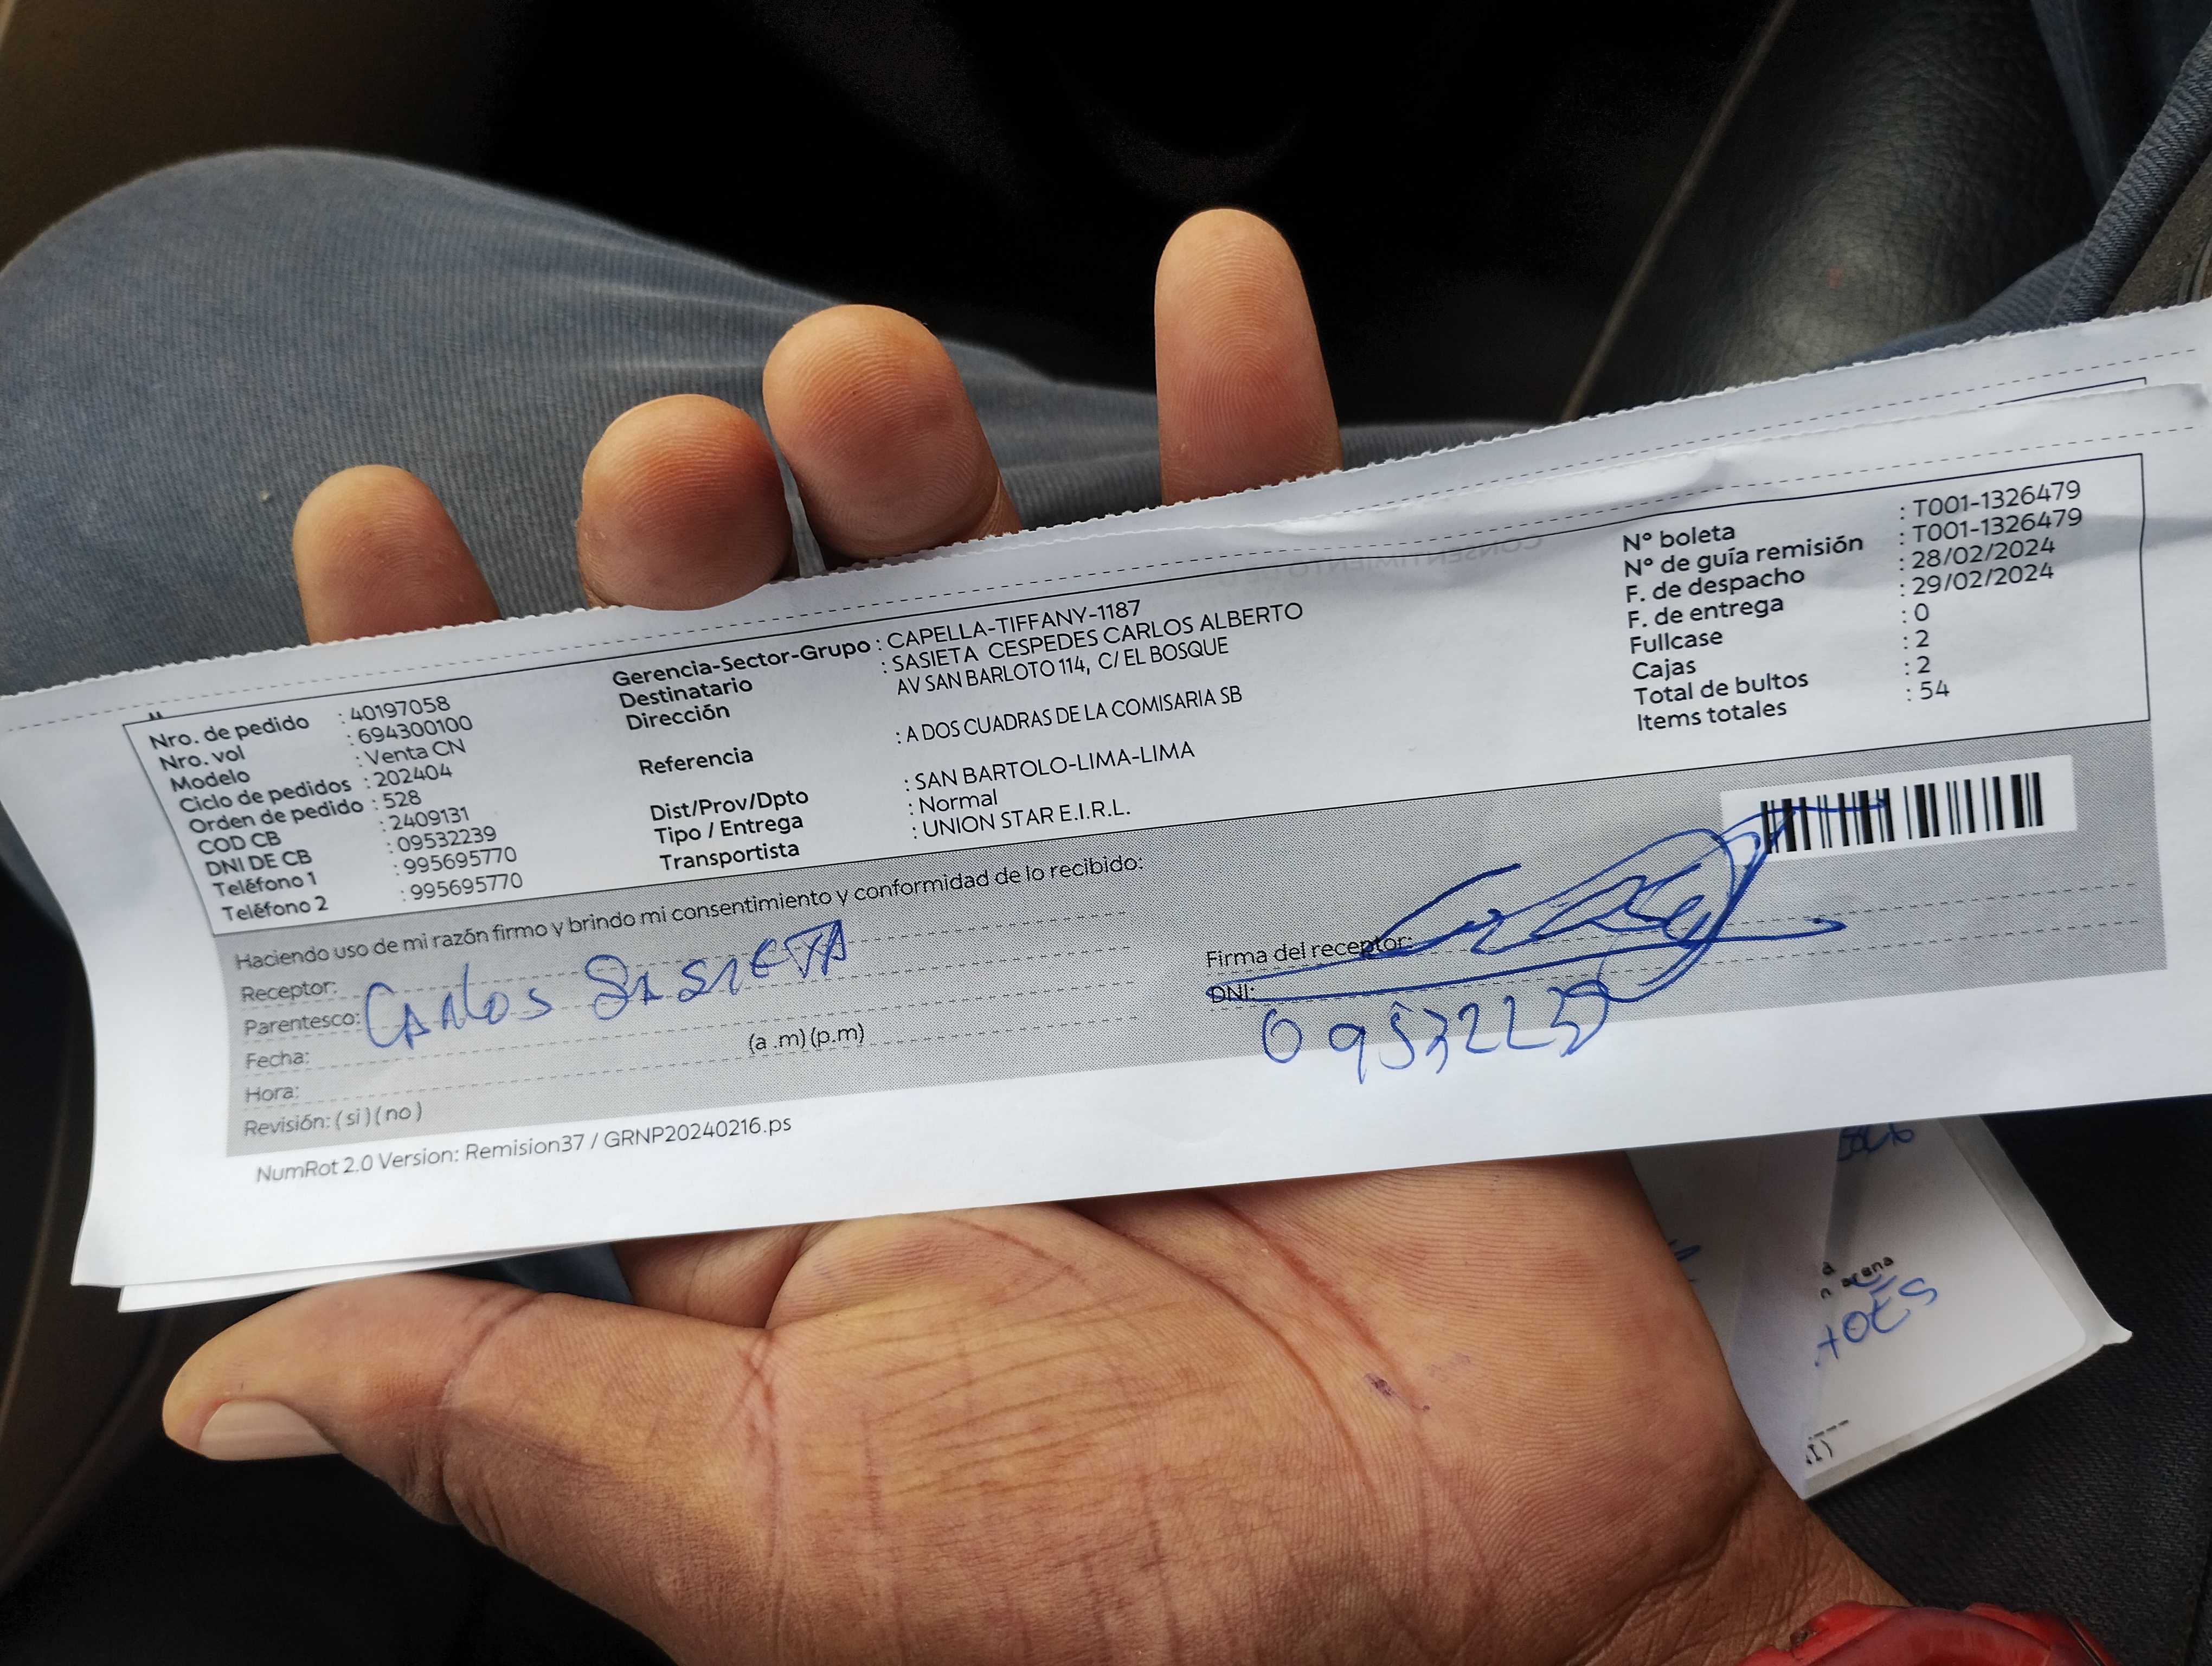 Nro. de pedido : 40197058
Nro. vol : 694300100
Modelo : Venta CN
Ciclo de pedidos : 202404
Orden de pedido : 528
COD CB : 2409131
DNI DE CB : 09532239
Teléfono 1 : 995695770
Teléfono 2 : 995695770
Gerencia-Sector-Grupo : CAPELLA-TIFFANY-1187
Destinatario : SASIETA CESPEDES CARLOS ALBERTO
Dirección AV SAN BARLOTO 114, C/ EL BOSQUE
Referencia : A DOS CUADRAS DE LA COMISARIA SB
Dist/Prov/Dpto : SAN BARTOLO-LIMA-LIMA
Tipo / Entrega : Normal
Transportista : UNION STAR E.I.R.L.
N° boleta : T001-1326479
N° de guía remisión : T001-1326479
F. de despacho : 28/02/2024
F. de entrega : 29/02/2024
Fullcase : 0
Cajas : 2
Total de bultos : 2
Items totales : 54
Haciendo uso de mi razón firmo y brindo mi consentimiento y conformidad de lo recibido:
Receptor:
Carlos SASIETA
Parentesco:
Fecha:
Hora: (a .m) (p.m)
Revisión: ( si ) ( no )
Firma del receptor:
DNI:
09532239
NumRot 2.0 Version: Remision37 / GRNP20240216.ps